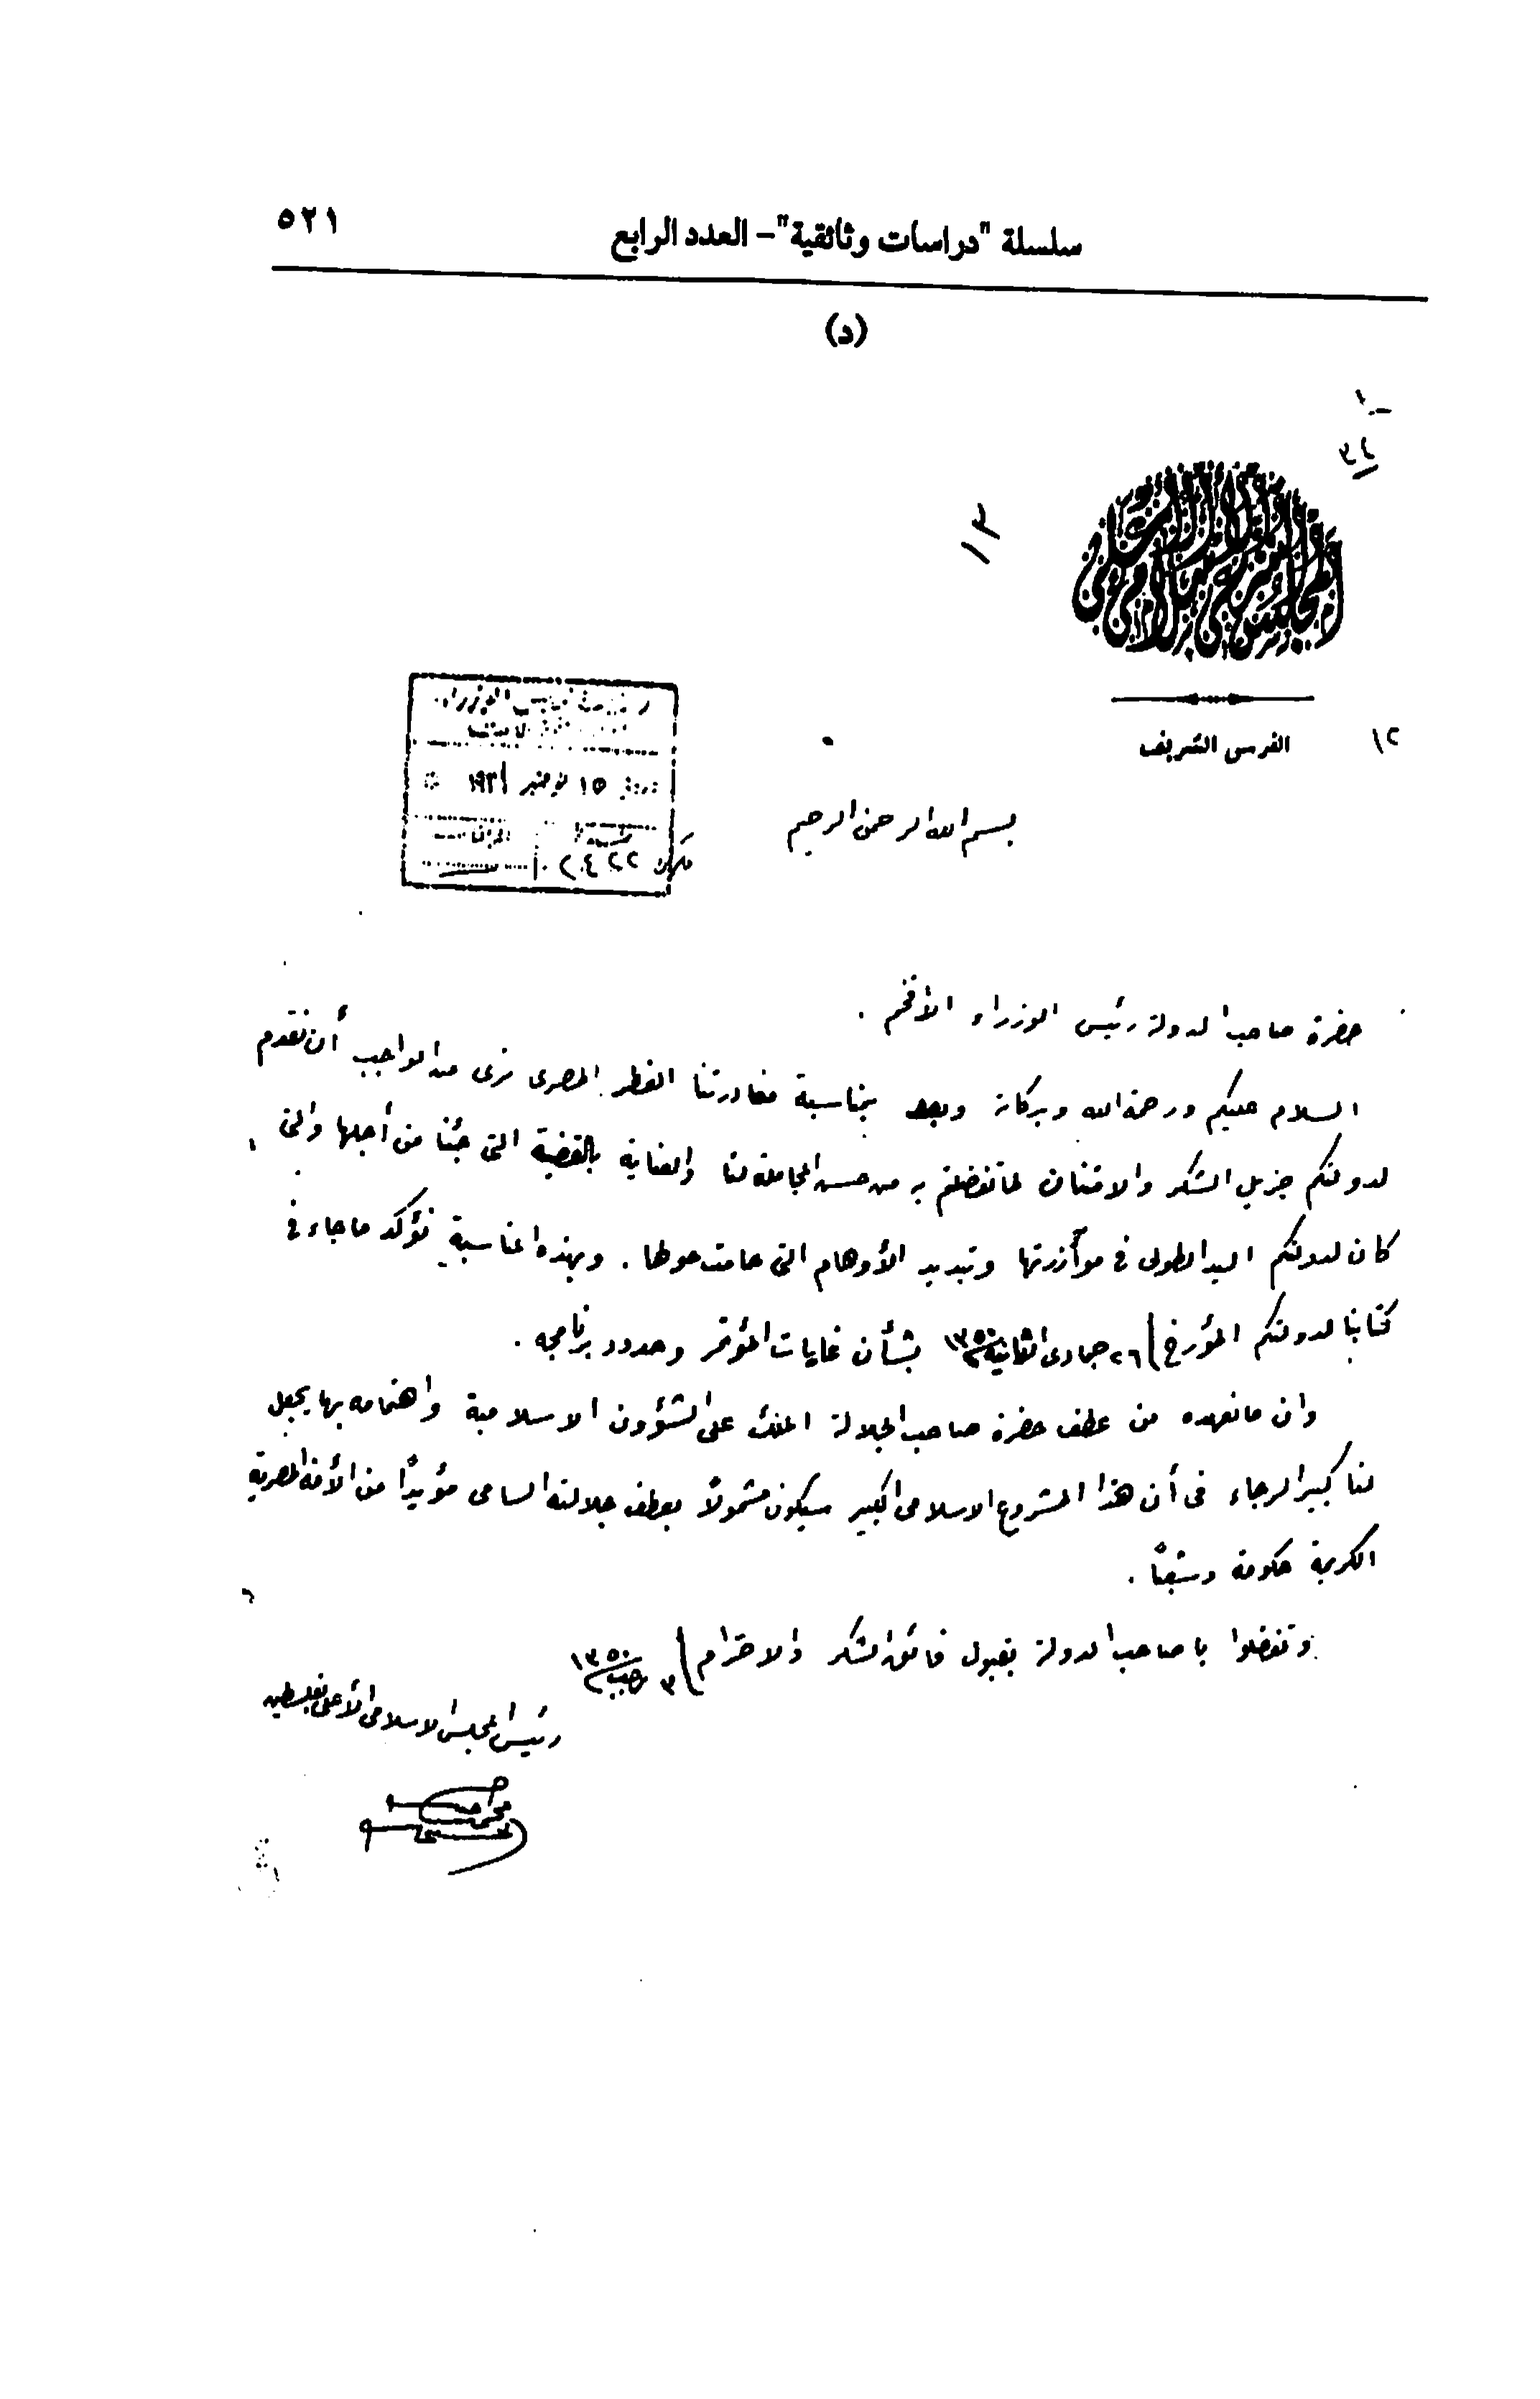 سلسلة "دراسات وثائقية" - العدد الرابع
٥٢١
(د)
١٣
١٢
القدس الشريف
رئاسة مجلس الوزراء
١٥ نوفمبر ١٩٣١
بسم الله الرحمن الرحيم
حضرة صاحب الدولة رئيس الوزراء الأفخم .
السلام عليكم ورحمة الله وبركاته وبعد بمناسبة مغادرتنا القطر المصرى نرى من الواجب أن نقدم
لدولتكم جزيل الشكر والامتنان لما تفضلتم به من حسن المجاملة لنا والعناية بالقضية التى جئنا من أجلها والتى
كان لدولتكم اليد الطولى فى موآزرتها وتبديد الأوهام التى حامت حولها . وبهذه المناسبة نؤكد ما جاء فى
كتابنا لدولتكم المؤرخ / ٢٦ جمادى الثانية ١٣٥٠ بشأن غايات المؤتمر وحدود برنامجه .
وان ما نعهده من عطف حضرة صاحب الجلالة الملك على الشؤون الاسلامية واهتمامه بها يجعل
لنا كبير الرجاء فى أن هذا المشروع الاسلامى الكبير سيكون مشمولاً بعطف جلالته السامى مؤيداً من الأمة المصرية
الكريمة حكومة وشعباً .
وتفضلوا يا صاحب الدولة بقبول فائق الشكر والاحترام / ٣ رجب ١٣٥٠
رئيس المجلس الاسلامى الأعلى بفلسطين